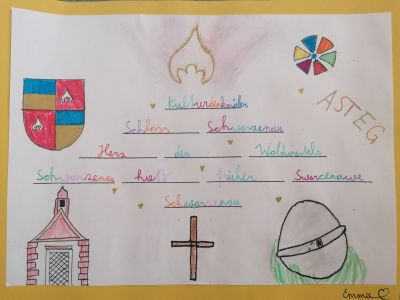 Kulturdenkmäler
Schloss Schwarzenau
Herz des Waldviertels
Schwarzenau hieß früher Swarcenawe
Schwarzenau
ASTEG
Emma